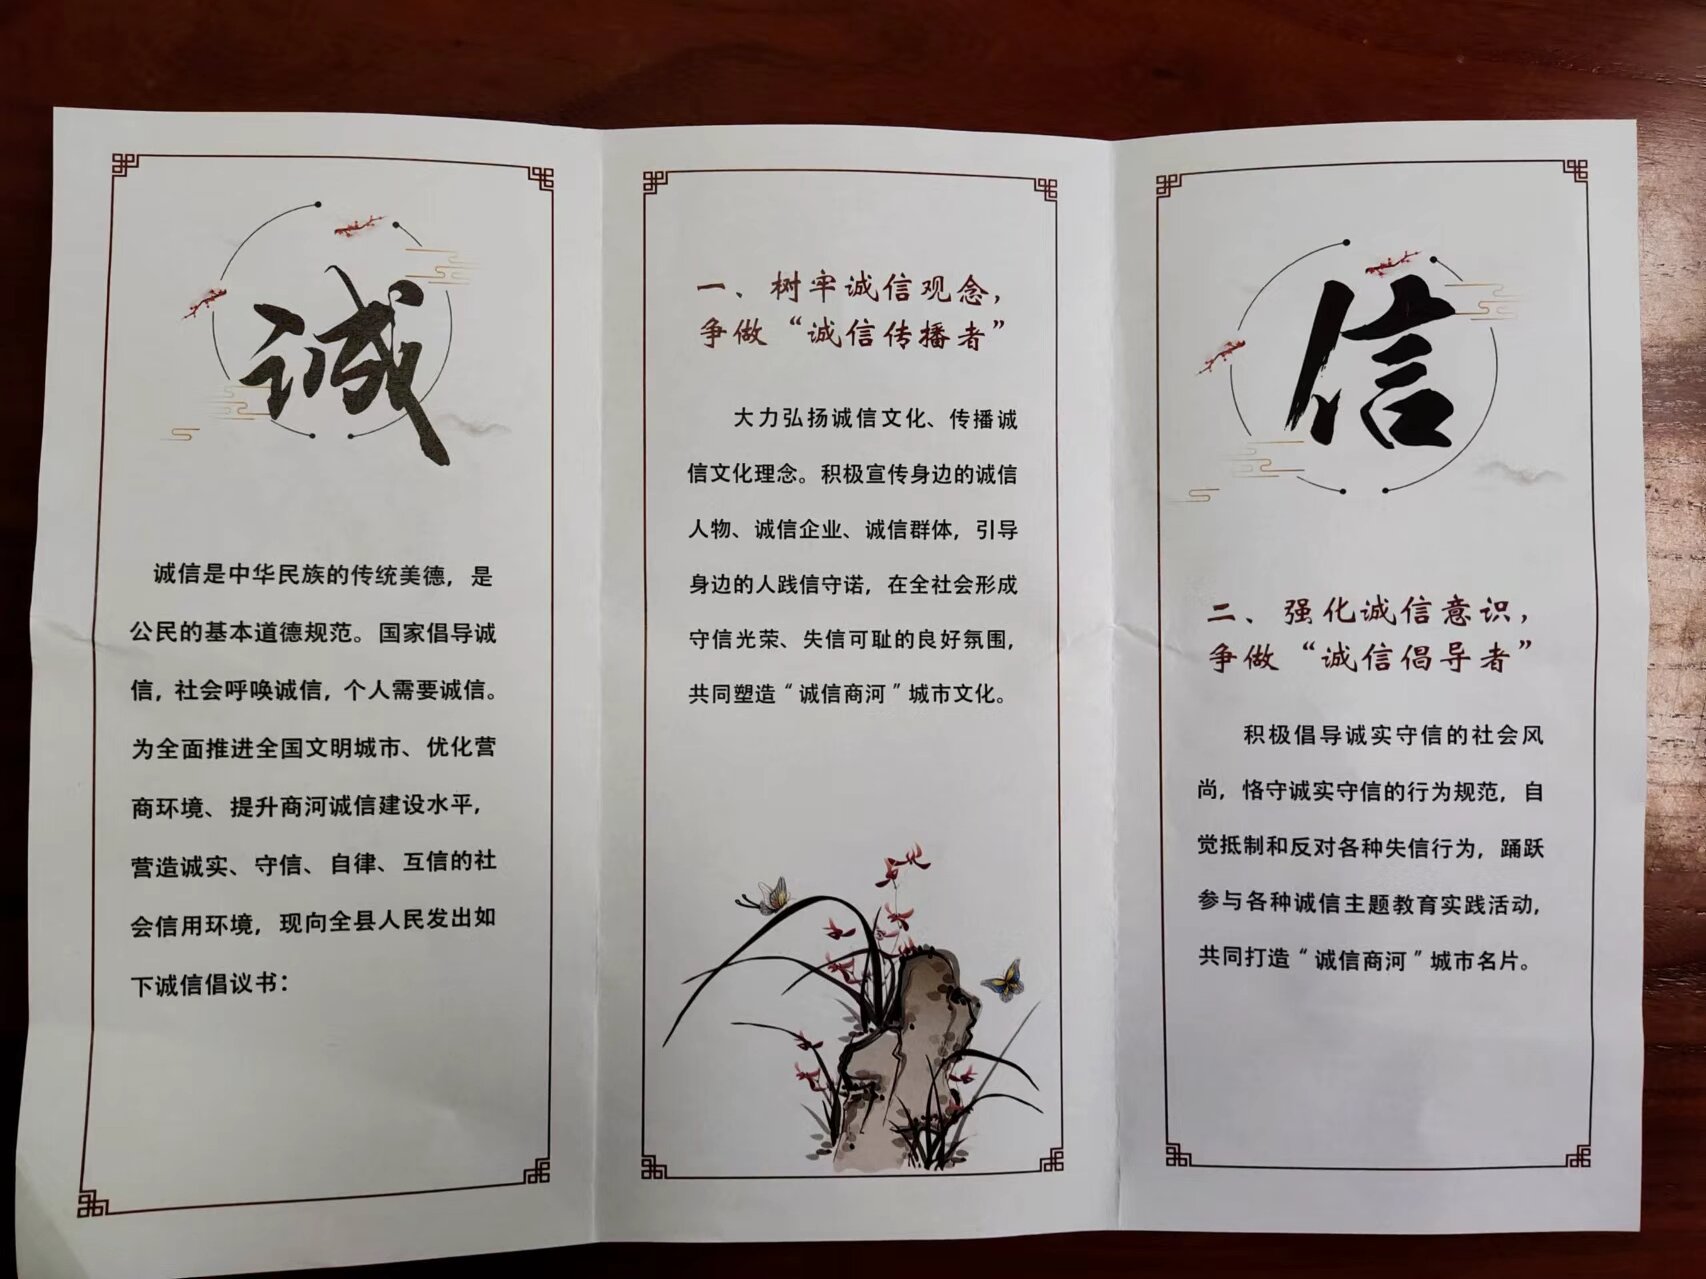 诚
诚信是中华民族的传统美德，是
公民的基本道德规范。国家倡导诚
信，社会呼唤诚信，个人需要诚信。
为全面推进全国文明城市、优化营
商环境、提升商河诚信建设水平，
营造诚实、守信、自律、互信的社
会信用环境，现向全县人民发出如
下诚信倡议书：
一、树牢诚信观念，
争做“诚信传播者”
大力弘扬诚信文化、传播诚
信文化理念。积极宣传身边的诚信
人物、诚信企业、诚信群体，引导
身边的人践信守诺，在全社会形成
守信光荣、失信可耻的良好氛围，
共同塑造“诚信商河”城市文化。
信
二、强化诚信意识，
争做“诚信倡导者”
积极倡导诚实守信的社会风
尚，恪守诚实守信的行为规范，自
觉抵制和反对各种失信行为，踊跃
参与各种诚信主题教育实践活动，
共同打造“诚信商河”城市名片。